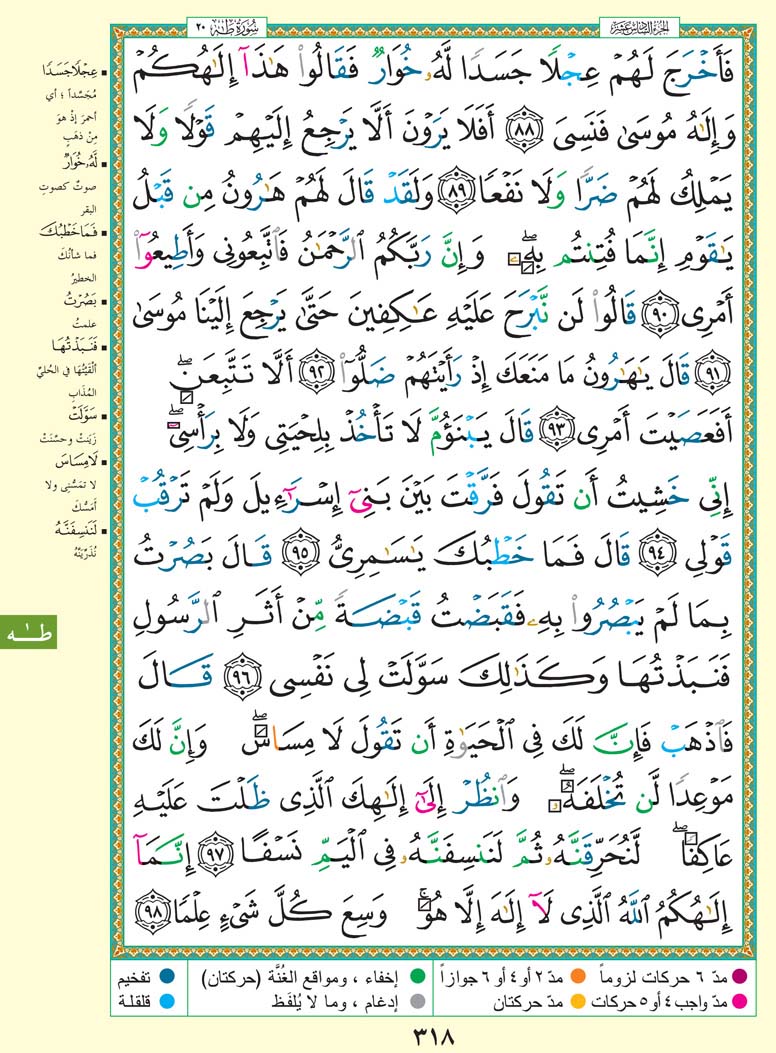 الجزء السادس عشر
سورة طه ٢٠
فَأَخْرَجَ لَهُمْ عِجْلًا جَسَدًا لَّهُۥ خُوَارٌ فَقَالُوا۟ هَٰذَآ إِلَٰهُكُمْ
وَإِلَٰهُ مُوسَىٰ فَنَسِىَ ﴿٨٨﴾ أَفَلَا يَرَوْنَ أَلَّا يَرْجِعُ إِلَيْهِمْ قَوْلًا وَلَا
يَمْلِكُ لَهُمْ ضَرًّا وَلَا نَفْعًا ﴿٨٩﴾ وَلَقَدْ قَالَ لَهُمْ هَٰرُونُ مِن قَبْلُ
يَٰقَوْمِ إِنَّمَا فُتِنتُم بِهِۦ ۖ وَإِنَّ رَبَّكُمُ ٱلرَّحْمَٰنُ فَٱتَّبِعُونِى وَأَطِيعُوٓا۟
أَمْرِى ﴿٩٠﴾ قَالُوا۟ لَن نَّبْرَحَ عَلَيْهِ عَٰكِفِينَ حَتَّىٰ يَرْجِعَ إِلَيْنَا مُوسَىٰ
﴿٩١﴾ قَالَ يَٰهَٰرُونُ مَا مَنَعَكَ إِذْ رَأَيْتَهُمْ ضَلُّوٓا۟ ﴿٩٢﴾ أَلَّا تَتَّبِعَنِ ۖ
أَفَعَصَيْتَ أَمْرِى ﴿٩٣﴾ قَالَ يَبْنَؤُمَّ لَا تَأْخُذْ بِلِحْيَتِى وَلَا بِرَأْسِىٓ ۖ
إِنِّى خَشِيتُ أَن تَقُولَ فَرَّقْتَ بَيْنَ بَنِىٓ إِسْرَٰٓءِيلَ وَلَمْ تَرْقُبْ
قَوْلِى ﴿٩٤﴾ قَالَ فَمَا خَطْبُكَ يَٰسَٰمِرِىُّ ﴿٩٥﴾ قَالَ بَصُرْتُ
بِمَا لَمْ يَبْصُرُوا۟ بِهِۦ فَقَبَضْتُ قَبْضَةً مِّنْ أَثَرِ ٱلرَّسُولِ
فَنَبَذْتُهَا وَكَذَٰلِكَ سَوَّلَتْ لِى نَفْسِى ﴿٩٦﴾ قَالَ
فَٱذْهَبْ فَإِنَّ لَكَ فِى ٱلْحَيَوٰةِ أَن تَقُولَ لَا مِسَاسَ ۖ وَإِنَّ لَكَ
مَوْعِدًا لَّن تُخْلَفَهُۥ ۖ وَٱنظُرْ إِلَىٰٓ إِلَٰهِكَ ٱلَّذِى ظَلْتَ عَلَيْهِ
عَاكِفًا ۖ لَّنُحَرِّقَنَّهُۥ ثُمَّ لَنَنسِفَنَّهُۥ فِى ٱلْيَمِّ نَسْفًا ﴿٩٧﴾ إِنَّمَآ
إِلَٰهُكُمُ ٱللَّهُ ٱلَّذِى لَآ إِلَٰهَ إِلَّا هُوَ ۚ وَسِعَ كُلَّ شَىْءٍ عِلْمًا ﴿٩٨﴾
▪ عِجْلًا جَسَدًا
مُجَسَّداً ؛ أي
أحمرَ إذ هوَ
مِنْ ذهبٍ
▪ لَّهُۥ خُوَارٌ
صوتٌ كصوتِ
البقر
▪ فَمَا خَطْبُكَ
فما شأنُكَ
الخطيرُ
▪ بَصُرْتُ
علمتُ
▪ فَنَبَذْتُهَا
ألْقَيْتُهَا في الحُليِّ
المُذَابِ
▪ سَوَّلَتْ
زيّنتْ وحسّنَتْ
▪ لَا مِسَاسَ
لا تمسُّني ولا
أَمَسُّكَ
▪ لَنَنسِفَنَّهُ
نُذَرِّيَنَّهُ
طٰه
مدّ ٦ حركات لزوماً
مدّ ٢ أو ٤ أو ٦ جوازاً
إخفاء ، ومواقع الغُنَّة (حركتان)
تفخيم
مدّ واجب ٤ أو ٥ حركات
مدّ حركتان
إدغام ، وما لا يُلفَظ
قلقلة
٣١٨